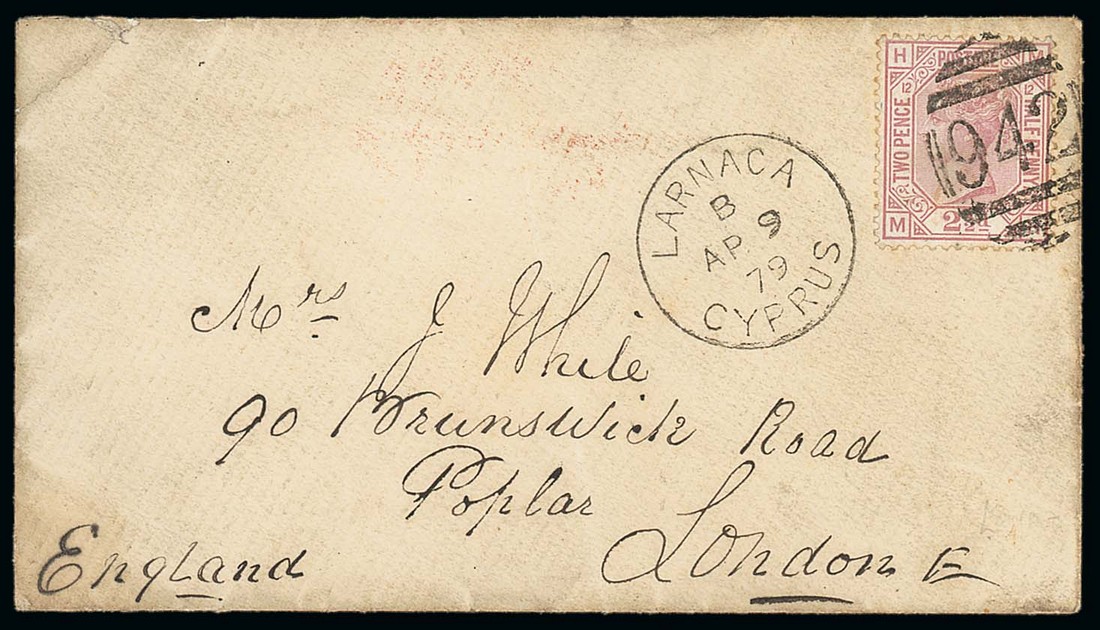 H POSTAGE M
TWO PENCE
12
12
HALF PENNY
M 2½
942
LARNACA
B
AP 9
79
CYPRUS
Mrs J White
90 Brunswick Road
Poplar
London E
England